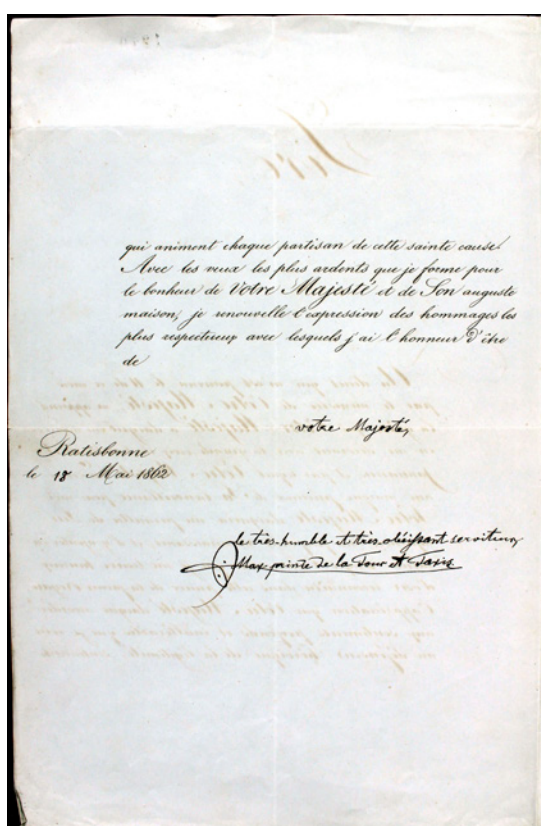 qui animent chaque partisan de cette sainte cause.
Avec les vœux les plus ardents que je forme pour
le bonheur de Votre Majesté et de Son auguste
maison, je renouvelle l'expression des hommages les
plus respectueux avec lesquels j'ai l'honneur d'être
de
votre Majesté,
Ratisbonne
le 18 Mai 1862
le très-humble et très-obéissant serviteur,
Max prince de la Tour et Taxis